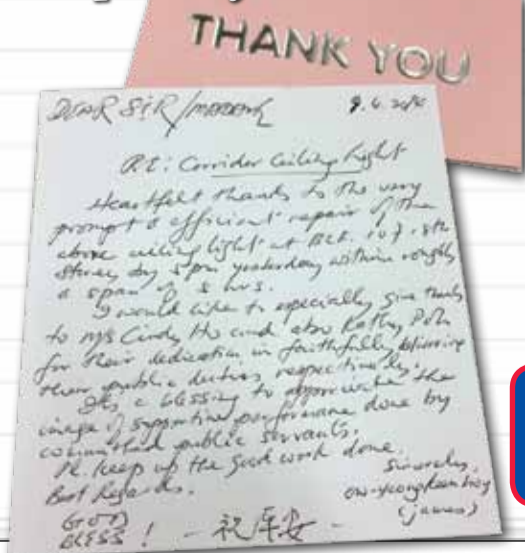 THANK YOU
DEAR SIR/MADAM
RE: Corrider Ceiling Light
Heartfelt thanks to the very
prompt & efficient repair of the
above ceiling light at BLK. 107. 8th
Storey by 5pm yesterday within roughly
a span of 5 hrs.
I would like to especially give thanks
to Ms Cindy Ho and also Kathy Poh
for their dedication in faithfully delivering
their public duties respectively.
Its a blessing to appreciate the
image of supportive performance done by
committed public servants.
Pl. keep up the good work done.
Best Regards.
Sincerely,
(James)
GOD
BLESS! - 祝平安 -